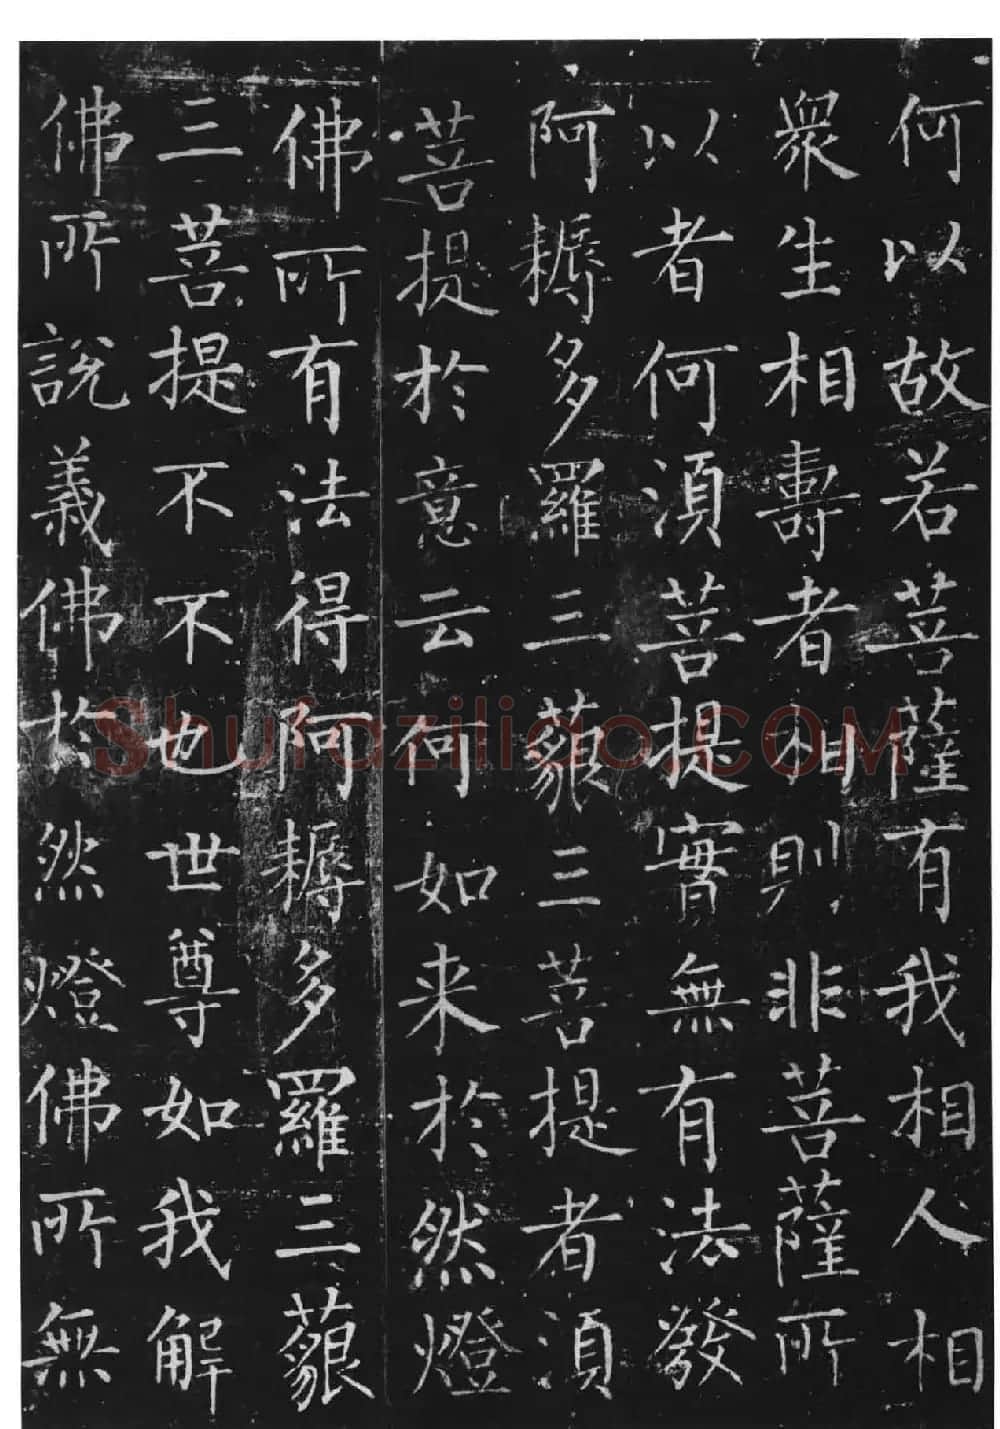 何以故若菩薩有我相人相
衆生相壽者相則非菩薩所
以者何須菩提實無有法發
阿耨多羅三藐三菩提者須
菩提於意云何如来於然燈
佛所有法得阿耨多羅三藐
三菩提不不也世尊如我解
佛所說義佛於然燈佛所無
Shufaziliao.COM